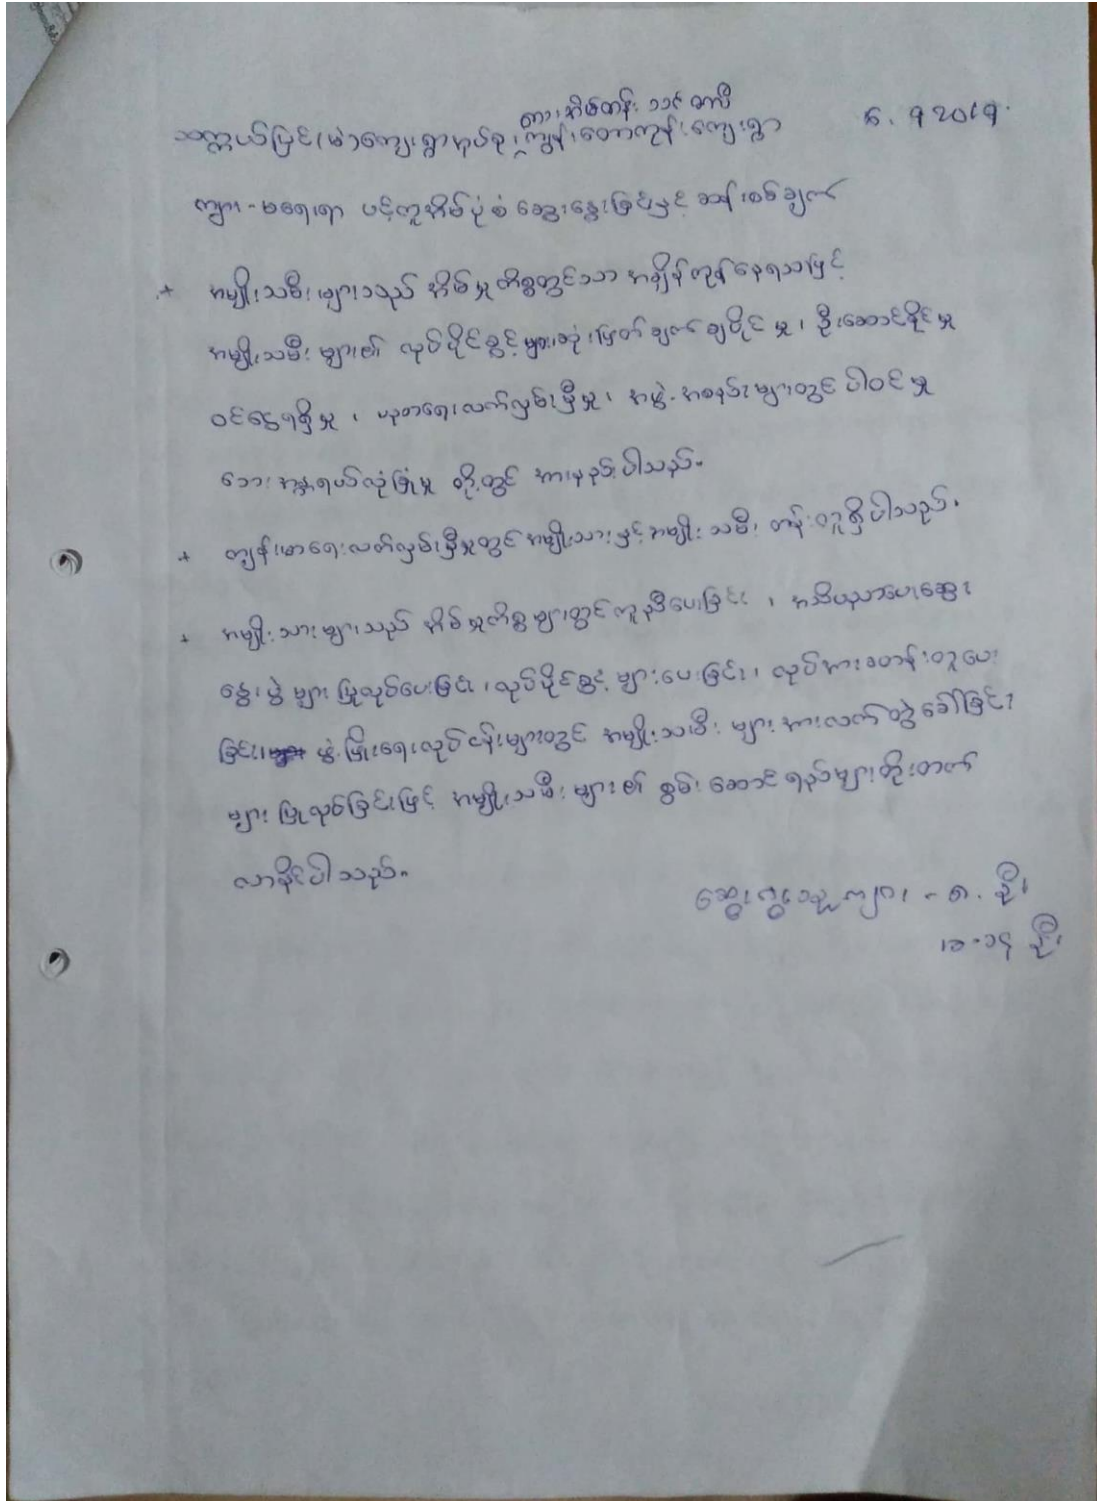 တား အိမ်တန်း ၁၁၆ တာပီ
သက္ကယ်ပြင်(မဲ)ကျေးရွာအုပ်စု ၊ ကျွန်းတောကုန်းကျေးရွာ 6. 9 2019.
ကျား - မရေးရာ ပင့်ကူအိမ်ပုံစံ ဆွေးနွေးခြင်းနှင့် ဆန်းစစ်ချက်
+ အမျိုးသမီးများသည် အိမ်မှုကိစ္စတွင်သာ အချိန်ကုန်နေရသဖြင့်
အမျိုးသမီးများ၏ လုပ်ပိုင်ခွင့်များ၊ ဆုံးဖြတ်ချက်ချပိုင်မှု ၊ ဦးဆောင်နိုင်မှု
ဝင်ငွေရရှိမှု ၊ ပညာရေးလက်လှမ်းမှီမှု ၊ အဖွဲ့အစည်းများတွင် ပါဝင်မှု
ဘေးအန္တရယ်လုံခြုံမှု တို့တွင် အားနည်းပါသည်။
+ ကျန်းမာရေးလက်လှမ်းမှီမှုတွင် အမျိုးသားနှင့် အမျိုးသမီး တန်းတူရှိပါသည်။
+ အမျိုးသားများသည် အိမ်မှုကိစ္စများတွင် ကူညီပေးခြင်း ၊ အသိပညာပေးဆွေး
နွေးပွဲများ ပြုလုပ်ပေးခြင်း ၊ လုပ်ပိုင်ခွင့်များပေးခြင်း ၊ လုပ်အားခတန်းတူပေး
ခြင်း၊ ဖွံ့ဖြိုးရေးလုပ်ငန်းများတွင် အမျိုးသမီးများအားလက်တွဲခေါ်ခြင်း
များ ပြုလုပ်ခြင်းဖြင့် အမျိုးသမီးများ၏ စွမ်းဆောင်ရည်များတိုးတက်
လာနိုင်ပါသည်။
ဆွေးနွေးသူ ကျား - ၈ ဦး
မ - ၁၄ ဦး